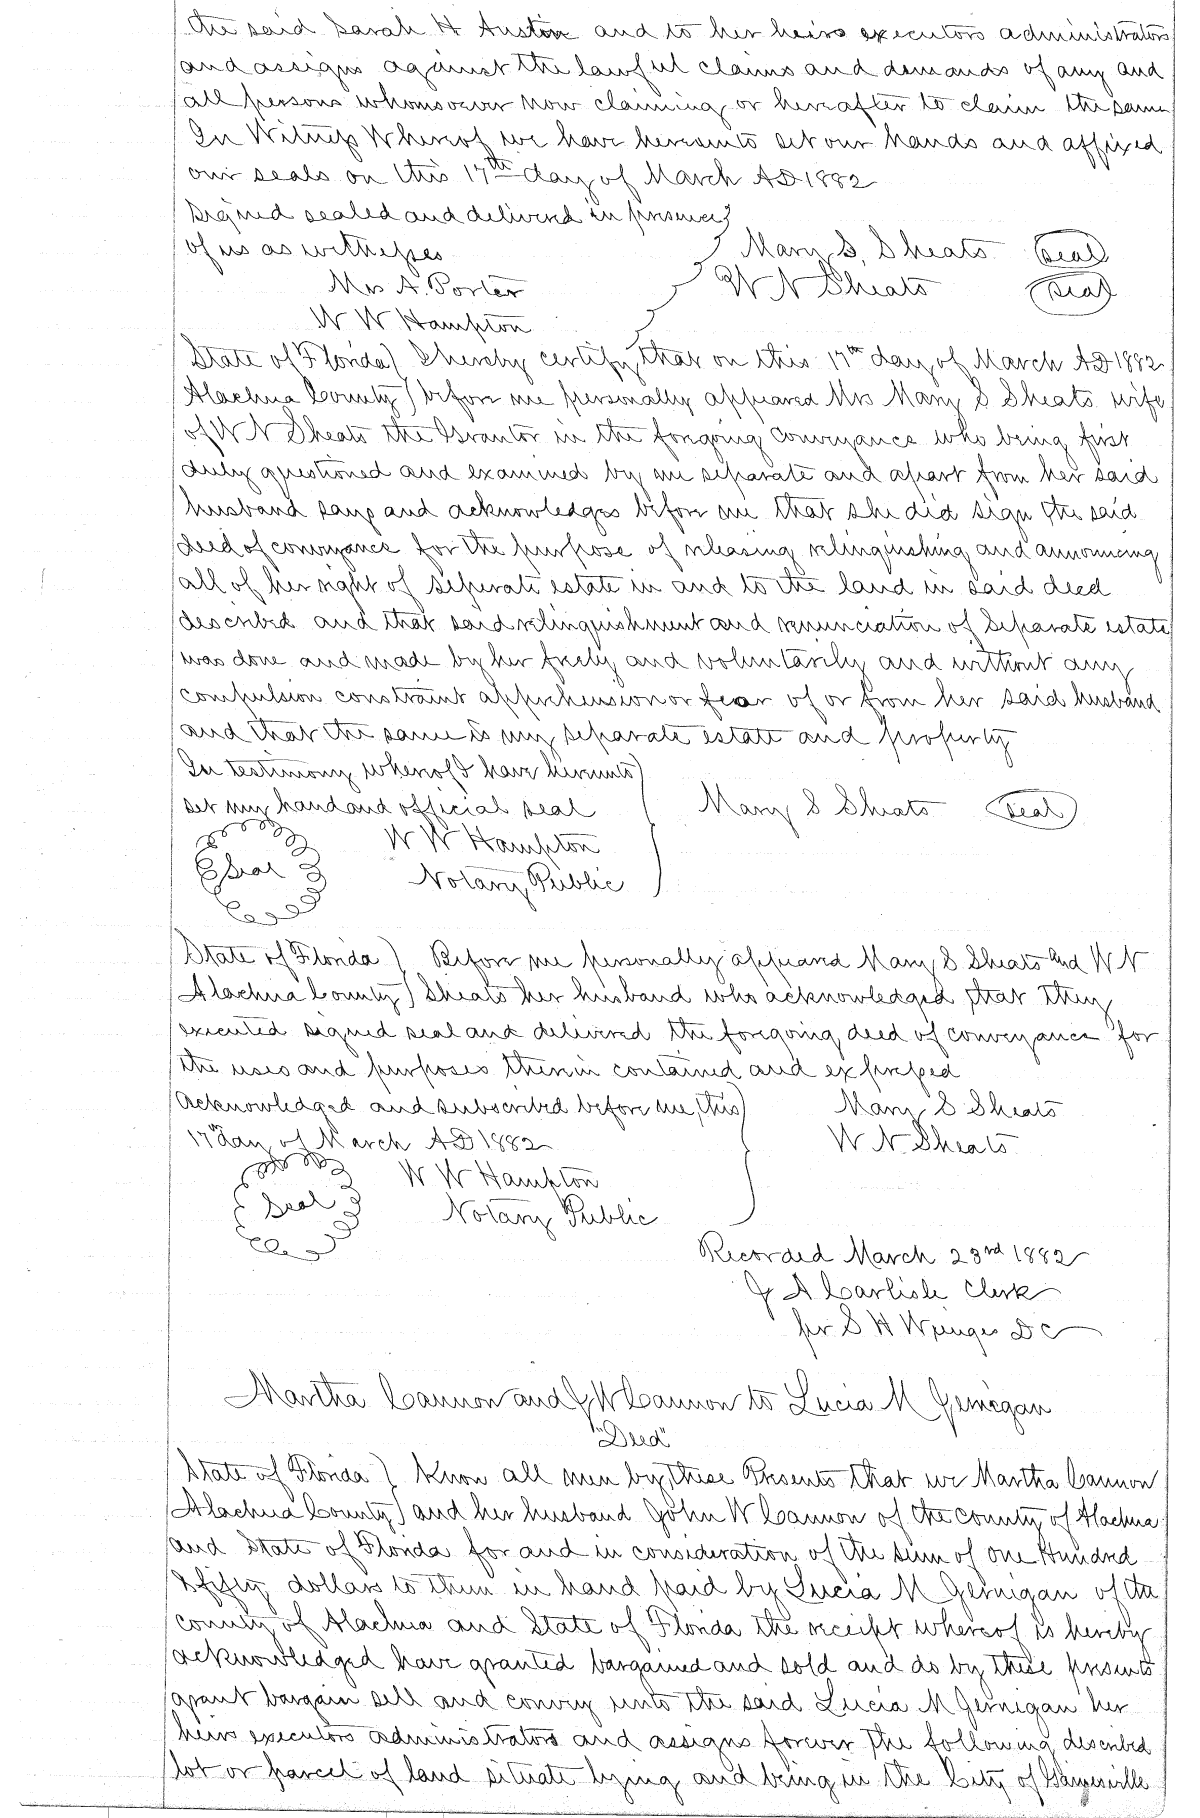 the said Sarah H Austin and to her heirs executors administrators
and assigns against the lawful claims and demands of any and
all persons whomsoever now claiming or hereafter to claim the same
In Witness Whereof we have hereunto set our hands and affixed
our seals on this 17th day of March AD 1882
Signed sealed and delivered in presence
of us as witnesses
Mary S. Sheats (Seal)
Mrs A. Porter
W N Sheats (Seal)
W W Hampton
State of Florida) I hereby certify that on this 17th day of March AD 1882
Alachua County) before me personally appeared Mrs Mary S Sheats wife
of W N Sheats the Grantor in the foregoing conveyance who being first
duly questioned and examined by me separate and apart from her said
husband says and acknowledges before me that she did sign the said
deed of conveyance for the purpose of releasing relinquishing and announcing
all of her right of seperate estate in and to the land in said deed
described and that said relinquishment and renunciation of Separate estate
was done and made by her freely and voluntarily and without any
compulsion constraint apprehension or fear of or from her said husband
and that the same is my separate estate and property
In testimony whereof I have hereunto)
set my hand and official seal
Mary S Sheats (Seal)
W W Hampton
Seal
Notary Public
State of Florida ) Before me personally appeared Mary S Sheats and W N
Alachua County) Sheats her husband who acknowledged that they
executed signed seal and delivered the foregoing deed of conveyance for
the uses and purposes therein contained and expressed
Acknowledged and subscribed before me, this)
Mary S Sheats
17th day of March AD 1882
W N. Sheats
W W Hampton
Seal
Notary Public
Recorded March 23rd 1882
J A Carlisle Clerk
per S H DC
Martha Cannon and J W Cannon to Lucia M Jernigan
"Deed"
State of Florida ) Know all men by these Presents that we Martha Cannon
Alachua County) and her husband John W Cannon of the county of Alachua
and State of Florida for and in consideration of the sum of one Hundred
& fifty dollars to them in hand paid by Lucia M Jernigan of the
county of Alachua and State of Florida the receipt whereof is hereby
acknowledged have granted bargained and sold and do by these presents
grant bargain sell and convey unto the said Lucia M Jernigan her
heirs executors administrators and assigns forever the following described
lot or parcel of land situate lying and being in the City of Gainesville